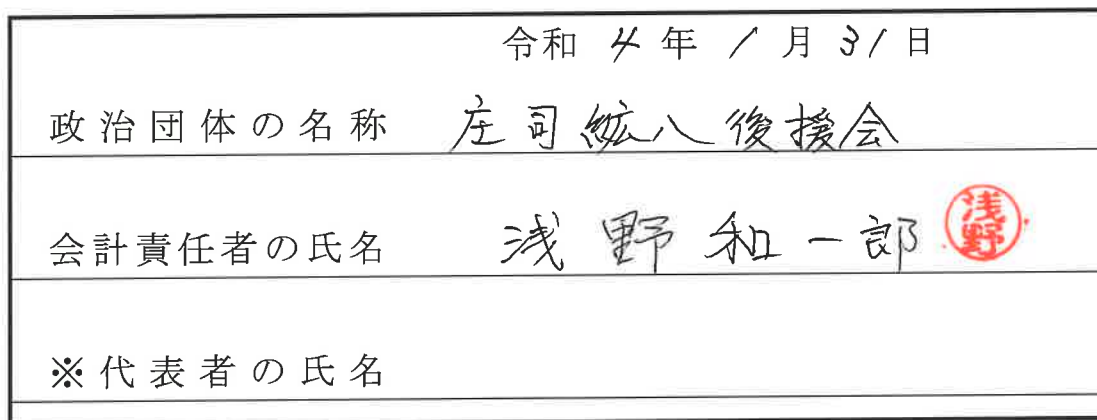 令和 4 年 1 月 31 日
政治団体の名称 庄司紘八後援会
会計責任者の氏名 浅野和一郎 浅野
※代表者の氏名